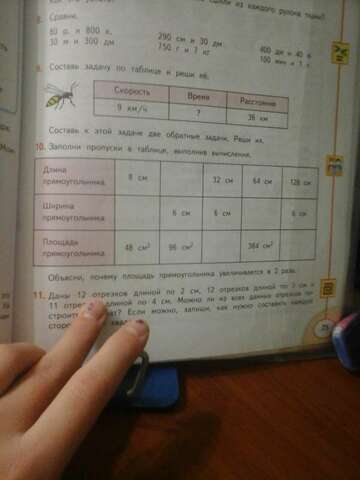 из каждого рулона ткани?
8. Сравни.
80 р. и 800 к. 290 см и 30 дм 400 дм и 40
30 м и 300 дм 750 г и 7 кг 100 мин и 1
9. Составь задачу по таблице и реши её.
Скорость Время Расстояние
9 км/ч ? 36 км
Составь к этой задаче две обратные задачи. Реши их.
10. Заполни пропуски в таблице, выполнив вычисления.
Длина прямоугольника 8 см 32 см 64 см 128 см
Ширина прямоугольника 6 см 6 см 6 см
Площадь прямоугольника 48 см² 96 см² 384 см²
Объясни, почему площадь прямоугольника увеличивается в 2 раза.
11. Даны 12 отрезков длиной по 2 см, 12 отрезков длиной по 3 см и
11 длиной по 4 см. Можно ли из всех данных отрезков
Если можно, запиши, как нужно составить каждую
25